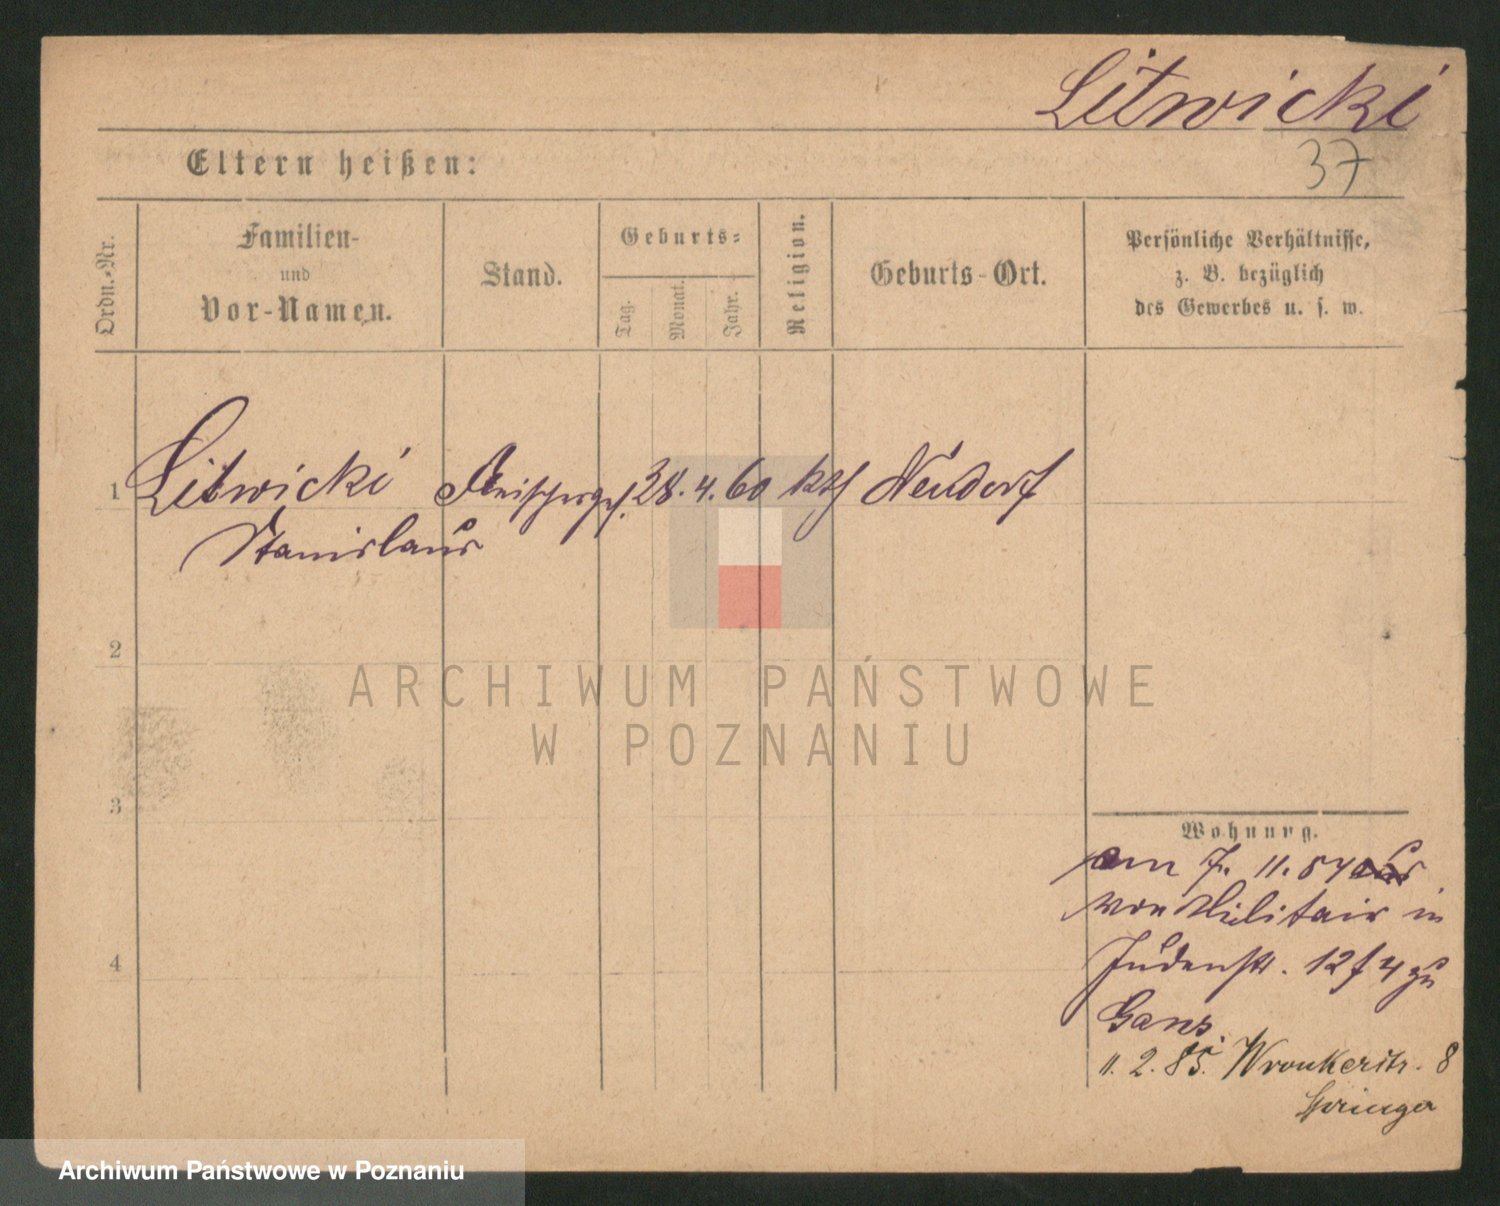 Litwicki
37
Eltern heißen:
Ordn.-Nr.
Familien-
und
Vor-Namen.
Stand.
Geburts-
Tag.
Monat.
Jahr.
Religion.
Geburts-Ort.
Persönliche Verhältnisse,
z. B. bezüglich
des Gewerbes u. s. w.
1 Litwicki Fleischerges. 28. 4. 60 kth Neudorf
Stanislaus
2
ARCHIWUM PAŃSTWOWE
W POZNANIU
3
Wohnung.
am 7. 11. 84
von Militair in
Judenstr. 12 f 4 zu
Gans.
4
11. 2. 85. Wronkerstr. 8
Springer
Archiwum Państwowe w Poznaniu